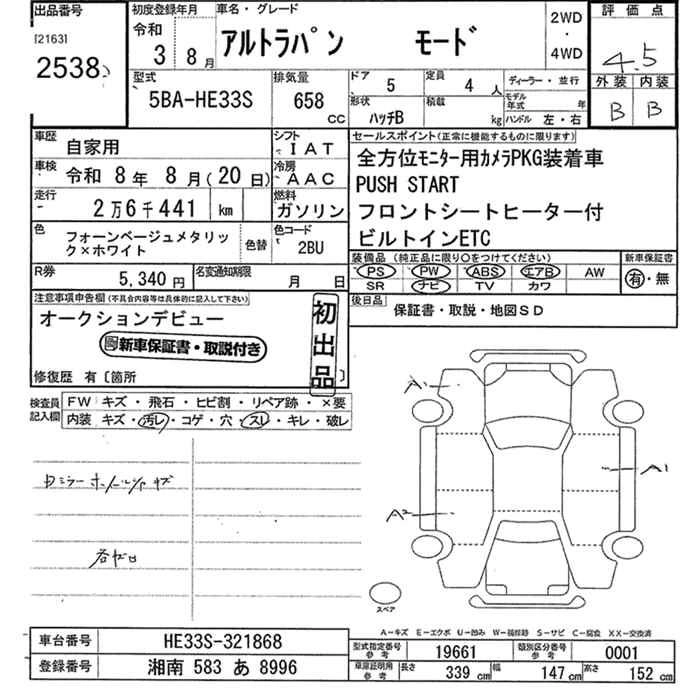 出品番号
[2163]
2538
初度登録年月
令和
3年 8月
車名・グレード
アルトラパン モード
2WD
・
4WD
評価点
4.5
外装 内装
B B
型式
5BA-HE33S
排気量
658
CC
ドア 5
定員 4人
形状 ハッチB
積載 kg
ディーラー・並行
モデル年式 年
ハンドル 左・右
車歴 自家用
シフト IAT
車検 令和 8年 8月(20日)
冷房 AAC
走行 2万6千441 km
燃料 ガソリン
色 フォーンベージュメタリック×ホワイト
色替
色コード 2BU
R券 5,340円
名変通知期限 月 日
セールスポイント(正常に機能するものに限ります)
全方位モニター用カメラPKG装着車
PUSH START
フロントシートヒーター付
ビルトインETC
装備品 (純正品に限り○をつけてください)
PS PW ABS エアB AW
SR ナビ TV カワ
新車保証書
有・無
後日品 保証書・取説・地図SD
注意事項申告欄(不具合内容等は具体的に記入して下さい)
オークションデビュー
新車保証書・取説付き
初出品
修復歴 有〔箇所
検査員記入欄
FW キズ・飛石・ヒビ割・リペア跡・×要
内装 キズ・汚レ・コゲ・穴・スレ・キレ・破レ
A1
A1
A2
スペア
A-キズ E-エクボ U-凹み W-補修跡 S-サビ C-腐食 XX-交換済
車台番号 HE33S-321868
登録番号 湘南 583 あ 8996
型式指定番号 参考 19661
類別区分番号 参考 0001
車庫証明用 参考 長さ 339cm 幅 147cm 高さ 152cm